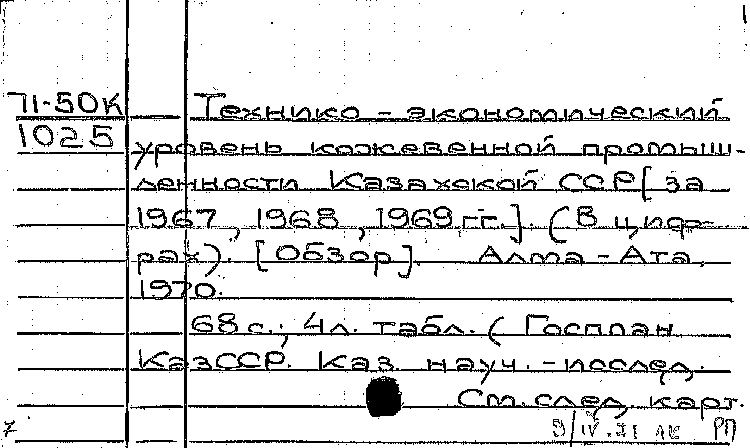 71-50К Технико-экономический
1025 уровень кожевенной промыш-
ленности Казахской ССР [за
1967, 1968, 1969 гг.]. (В циф-
рах). [Обзор]. Алма-Ата,
1970.
68 с.; 4 л. табл. (Госплан
КазССР. Каз. науч.-послед.
См. след. карт.
9/IV.71 РП